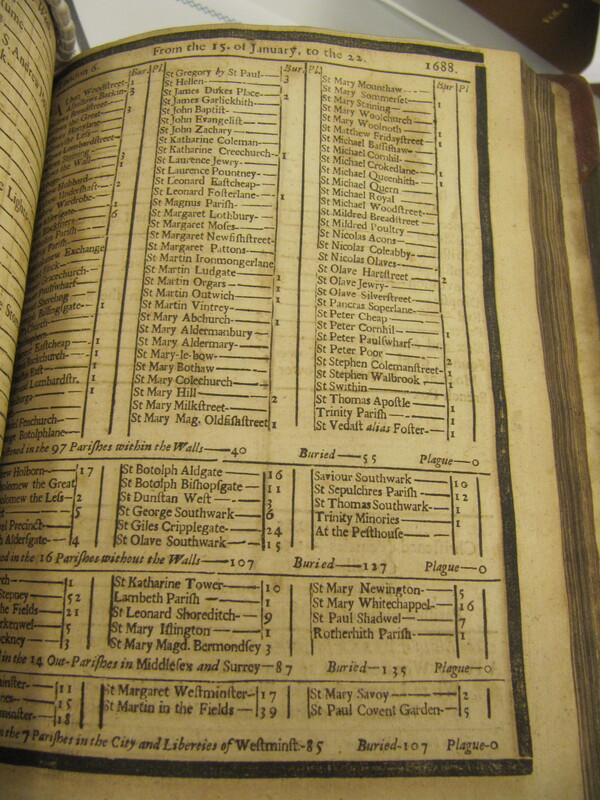 From the 15. of January, to the 22.
1688.
Bur. Pl.
Woodſtreet- 1
Barkin- 3
the Great
Honylane
the Leſs
Lombardſtreet
3
the Wall 1
Hubbard
Underſhaft- 2
Wardrobe
1
6
Pariſh
Exchange
Gracechurch
Billingſgate- 1
Church
Eaſtcheap 1
1
Eaſt 1
Lombardſtr. 1
1
Fenchurch
Botolphlane
Bur. Pl.
St Gregory by St Paul 3
St Hellen
St James Dukes Place 2
St James Garlickhith
St John Baptiſt
St John Evangeliſt
St John Zachary
St Katharine Coleman
St Katharine Creechurch 1
St Laurence Jewry
St Laurence Pountney
St Leonard Eaſtcheap
St Leonard Foſterlane 1
St Magnus Pariſh
St Margaret Lothbury
St Margaret Moſes
St Margaret Newfiſhſtreet
St Margaret Pattons
St Martin Ironmongerlane
St Martin Ludgate 1
St Martin Orgars 1
St Martin Outwich 1
St Martin Vintrey
St Mary Abchurch 1
St Mary Aldermanbury
St Mary Aldermary
St Mary-le-bow
St Mary Bothaw
St Mary Colechurch
St Mary Hill 2
St Mary Milkſtreet
St Mary Mag. Oldfiſhſtreet 1
Bur Pl
St Mary Mounthaw
St Mary Sommerſet 1
St Mary Staining
St Mary Woolchurch 1
St Mary Woolnoth
St Matthew Fridayſtreet 1
St Michael Baſſiſhaw
St Michael Cornhil
St Michael Crokedlane 1
St Michael Queenhith 1
St Michael Quern
St Michael Royal
St Michael Woodſtreet
St Mildred Breadſtreet
St Mildred Poultry
St Nicolas Acons
St Nicolas Coleabby
St Nicolas Olaves
St Olave Hartſtreet 2
St Olave Jewry
St Olave Silverſtreet
St Pancras Soperlane
St Peter Cheap
St Peter Cornhil 1
St Peter Paulſwharf
St Peter Poor
St Stephen Colemanſtreet 2
St Stephen Walbrook 1
St Swithin
St Thomas Apoſtle 1
Trinity Pariſh 1
St Vedaſt alias Foſter 1
in the 97 Pariſhes within the Walls 40 Buried 55 Plague 0
Holborn 17
the Great
the Leſs 2
5
Precinct
Alderſgate 4
St Botolph Aldgate 16
St Botolph Biſhopſgate 11
St Dunſtan Weſt 3
St George Southwark 6
St Giles Cripplegate 24
St Olave Southwark 15
Saviour Southwark 10
St Sepulchres Pariſh 12
St Thomas Southwark 1
Trinity Minories 1
At the Peſthouſe
in the 16 Pariſhes without the Walls 107 Buried 127 Plague 0
1
Stepney 52
the Fields 21
5
3
St Katharine Tower 10
Lambeth Pariſh 1
St Leonard Shoreditch 9
St Mary Iſlington 1
St Mary Magd. Bermondſey 3
St Mary Newington 5
St Mary Whitechappel 16
St Paul Shadwel 7
Rotherhith Pariſh 1
in the 14 Out-Pariſhes in Middleſex and Surrey 87 Buried 135 Plague 0
11
15
18
St Margaret Weſtminſter 17
St Martin in the Fields 39
St Mary Savoy 2
St Paul Covent Garden 5
in the 7 Pariſhes in the City and Liberties of Weſtminſt. 85 Buried 107 Plague 0